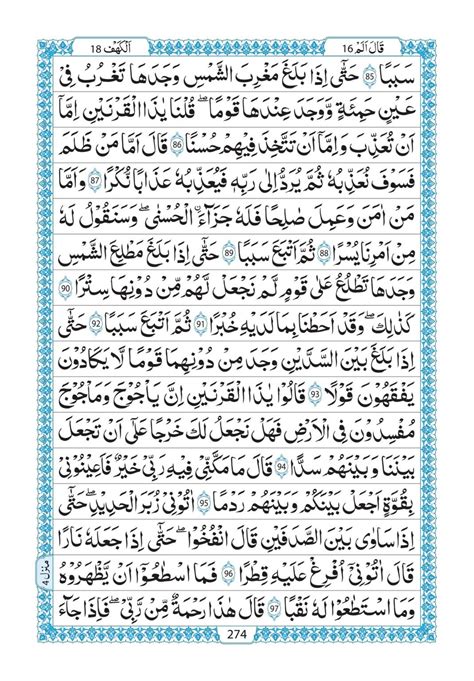 قَالَ اَلَمْ 16
اَلْكَهْف 18
سَبَبًا 85 حَتّٰۤى اِذَا بَلَغَ مَغْرِبَ الشَّمْسِ وَجَدَهَا تَغْرُبُ فِیْ
عَیْنٍ حَمِئَةٍ وَّوَجَدَ عِنْدَهَا قَوْمًا ؕ قُلْنَا یٰذَا الْقَرْنَیْنِ اِمَّاۤ
اَنْ تُعَذِّبَ وَاِمَّاۤ اَنْ تَتَّخِذَ فِیْهِمْ حُسْنًا 86 قَالَ اَمَّا مَنْ ظَلَمَ
فَسَوْفَ نُعَذِّبُهٗ ثُمَّ یُرَدُّ اِلٰى رَبِّهٖ فَیُعَذِّبُهٗ عَذَابًا نُّكْرًا 87 وَاَمَّا
مَنْ اٰمَنَ وَعَمِلَ صَالِحًا فَلَهٗ جَزَآءَ اِ۟لْحُسْنٰى ۚ وَسَنَقُوْلُ لَهٗ
مِنْ اَمْرِنَا یُسْرًا 88 ثُمَّ اَتْبَعَ سَبَبًا 89 حَتّٰۤى اِذَا بَلَغَ مَطْلِعَ الشَّمْسِ
وَجَدَهَا تَطْلُعُ عَلٰى قَوْمٍ لَّمْ نَجْعَلْ لَّهُمْ مِّنْ دُوْنِهَا سِتْرًا 90
كَذٰلِكَ ؕ وَقَدْ اَحَطْنَا بِمَا لَدَیْهِ خُبْرًا 91 ثُمَّ اَتْبَعَ سَبَبًا 92 حَتّٰۤى
اِذَا بَلَغَ بَیْنَ السَّدَّیْنِ وَجَدَ مِنْ دُوْنِهِمَا قَوْمًا لَّا یَكَادُوْنَ
یَفْقَهُوْنَ قَوْلًا 93 قَالُوْا یٰذَا الْقَرْنَیْنِ اِنَّ یَاْجُوْجَ وَمَاْجُوْجَ
مُفْسِدُوْنَ فِی الْاَرْضِ فَهَلْ نَجْعَلُ لَكَ خَرْجًا عَلٰۤى اَنْ تَجْعَلَ
بَیْنَنَا وَبَیْنَهُمْ سَدًّا 94 قَالَ مَا مَكَّنِّیْ فِیْهِ رَبِّیْ خَیْرٌ فَاَعِیْنُوْنِیْ
بِقُوَّةٍ اَجْعَلْ بَیْنَكُمْ وَبَیْنَهُمْ رَدْمًا 95 اٰتُوْنِیْ زُبَرَ الْحَدِیْدِ ؕ حَتّٰۤى
اِذَا سَاوٰى بَیْنَ الصَّدَفَیْنِ قَالَ انْفُخُوْا ؕ حَتّٰۤى اِذَا جَعَلَهٗ نَارًا
قَالَ اٰتُوْنِیْۤ اُفْرِغْ عَلَیْهِ قِطْرًا 96 فَمَا اسْطَاعُوْۤا اَنْ یَّظْهَرُوْهُ
وَمَا اسْتَطَاعُوْا لَهٗ نَقْبًا 97 قَالَ هٰذَا رَحْمَةٌ مِّنْ رَّبِّیْ ۚ فَاِذَا جَآءَ
منزل ۴
274